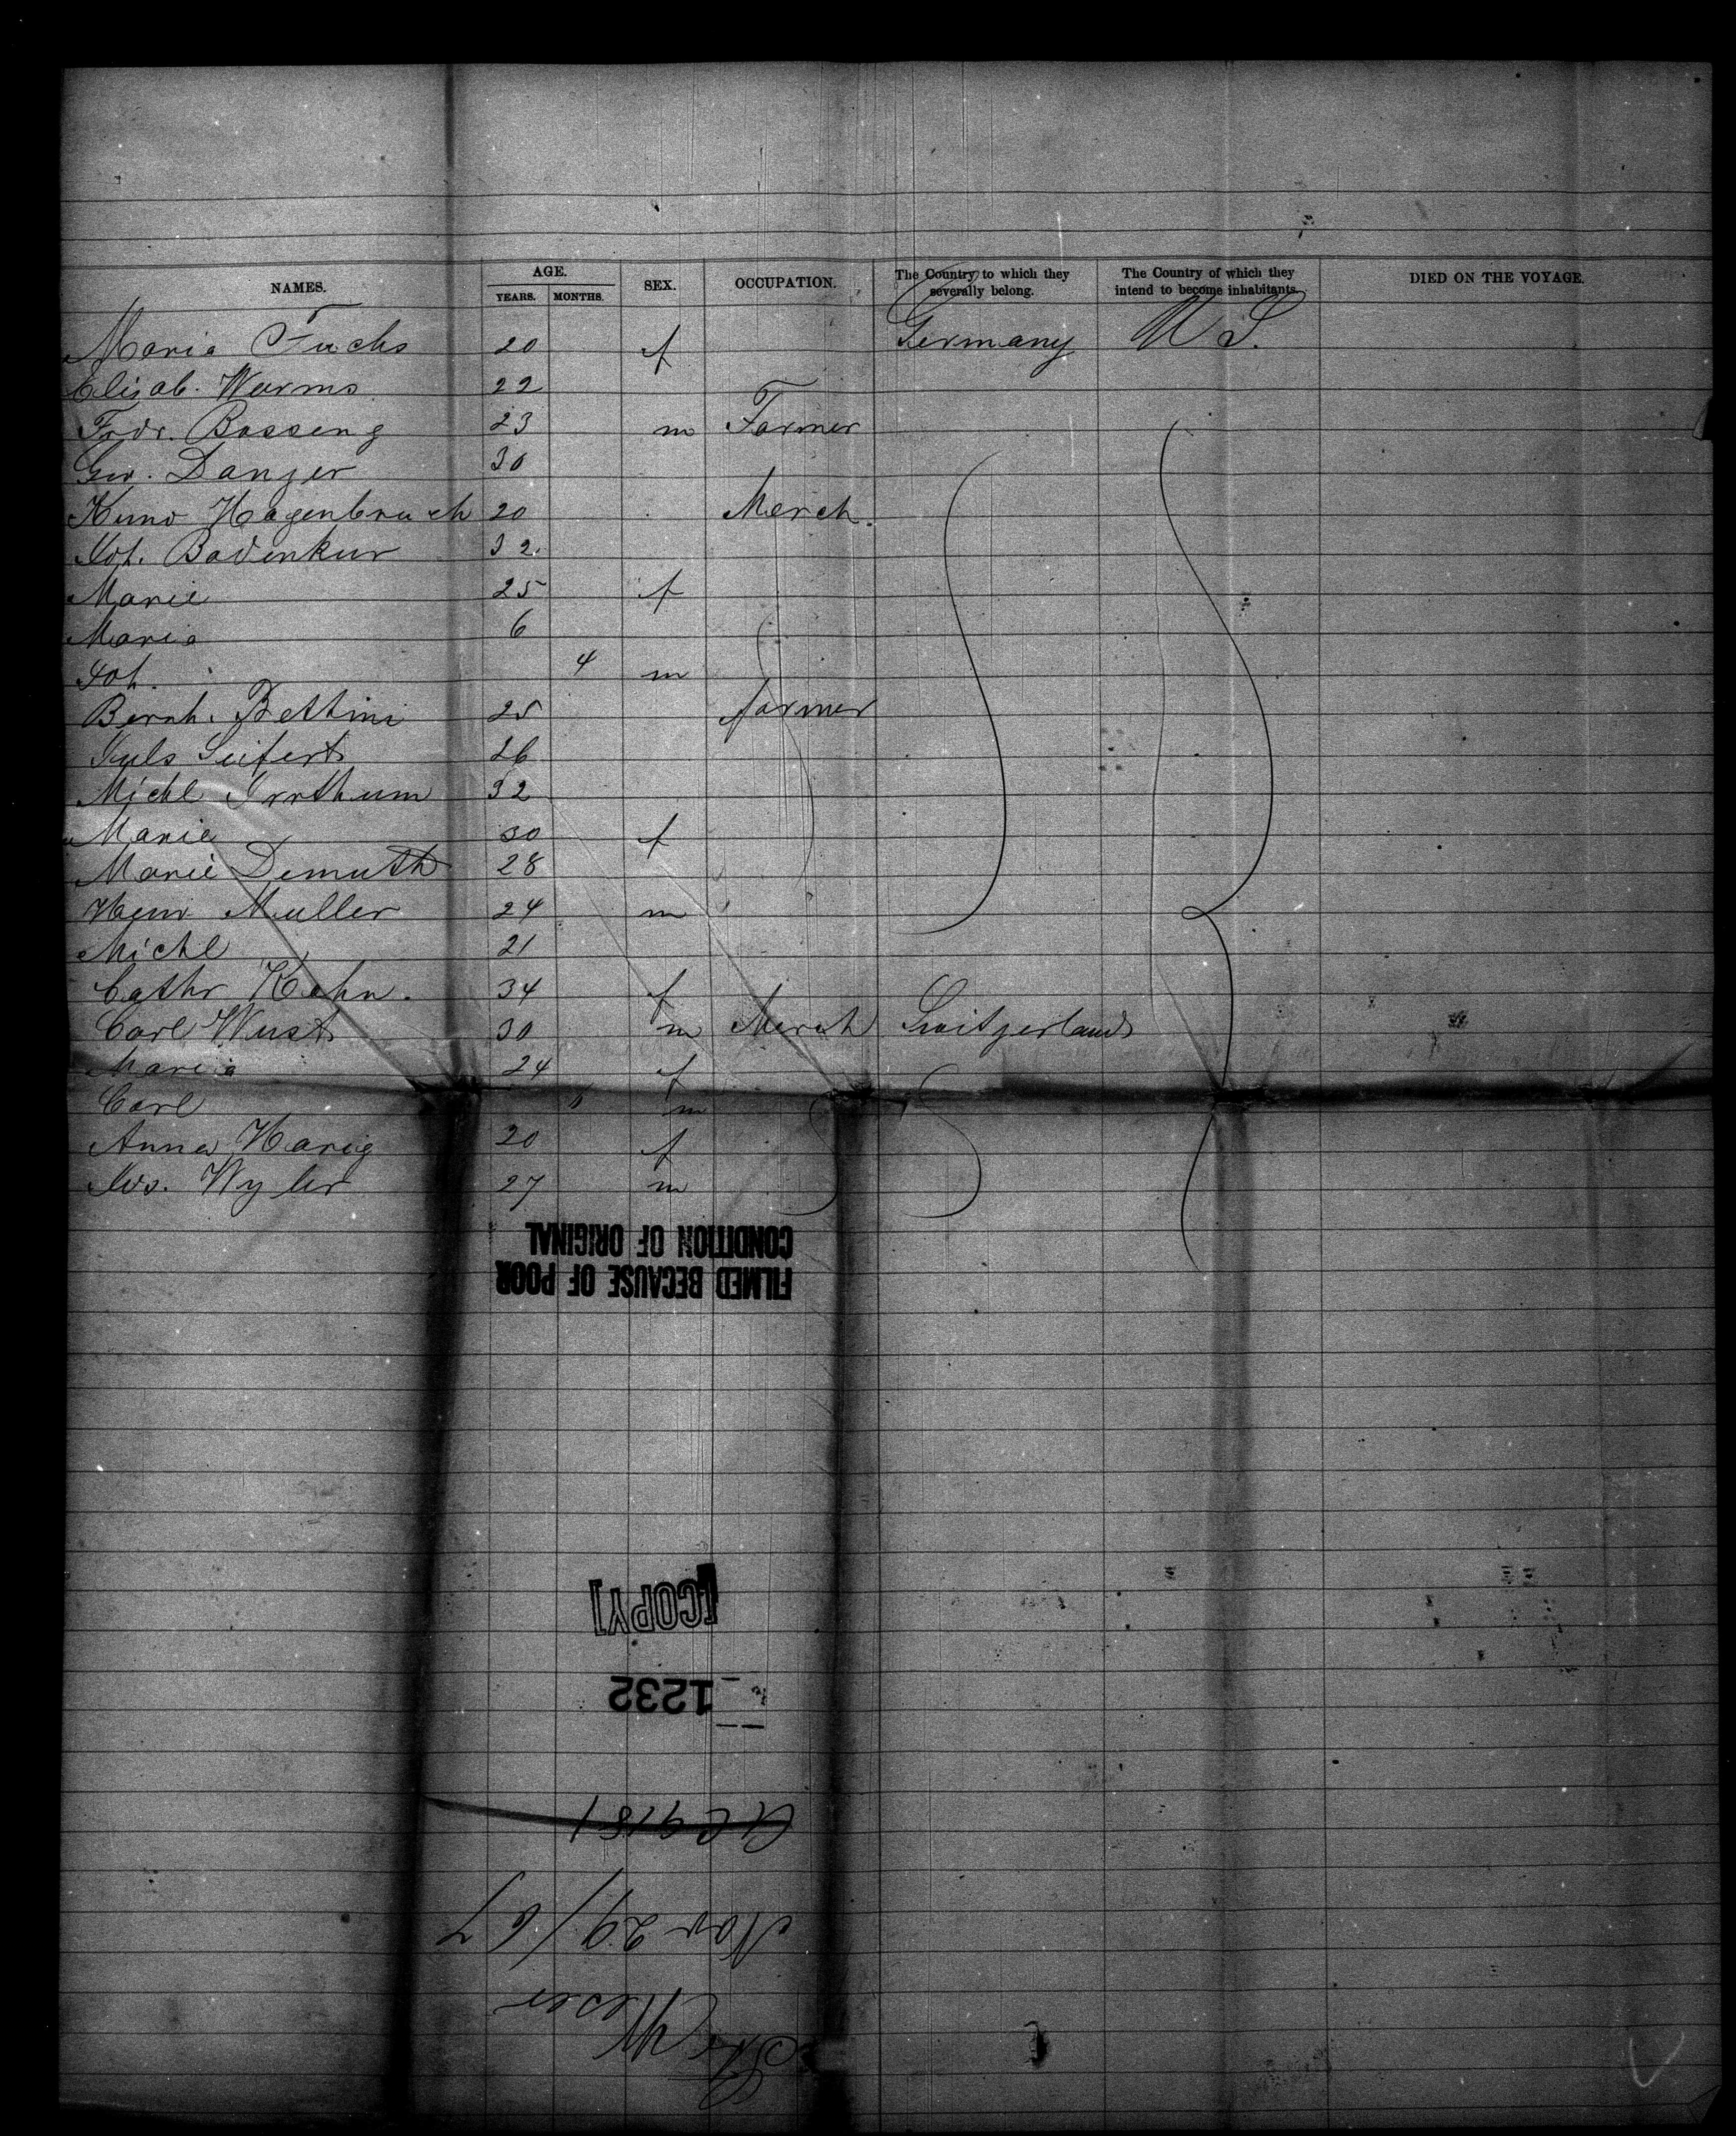 NAMES. AGE. SEX. OCCUPATION. The Country to which they severally belong. The Country of which they intend to become inhabitants. DIED ON THE VOYAGE.
YEARS. MONTHS.
Maria Fuchs 20 f Germany U S.
Elisab. Worms 22
Fridr. Bosseng 23 m Farmer
Geo. Danzer 30
Kuno Hagenbruch 20 Merch.
Joh. Badenkur 32
Marie 25 f
Maria 6
Joh. 4 m
Bernh. Bettini 25 farmer
Juls Seifert 26
Michl Irrthum 32
Marie 30 f
Marie Demuth 28
Henr Muller 24 m
Michl 21
Cathr Kohn. 34 f
Carl Wust 30 m Merch Switzerland
Maria 24 f
Carl m
Anna Harig 20 f
Jos. Wyler 27 m
FILMED BECAUSE OF POOR
CONDITION OF ORIGINAL
[COPY]
1232
9181
Nov 29/67
Str Weser